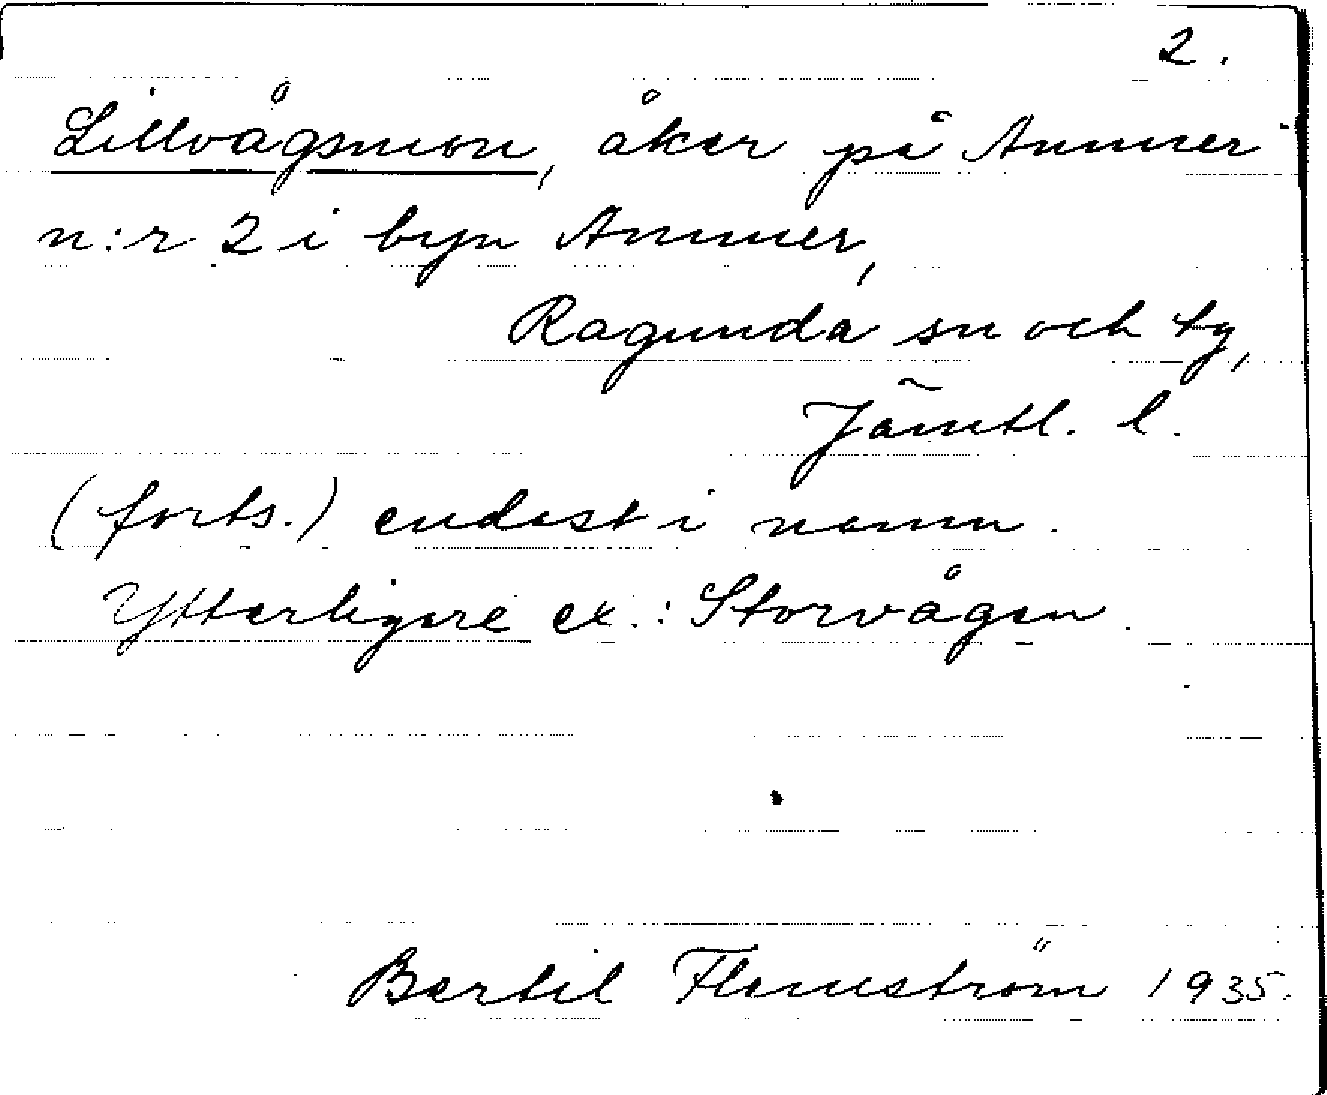 2.
Lillvågsmon, åker på Ammer
n:r 2 i byn Ammer,
Ragunda sn och tg,
Jämtl. l.
(forts.) endast i namn.
Ytterligare ex.: Storvågen.
Bertil Flemström 1935.